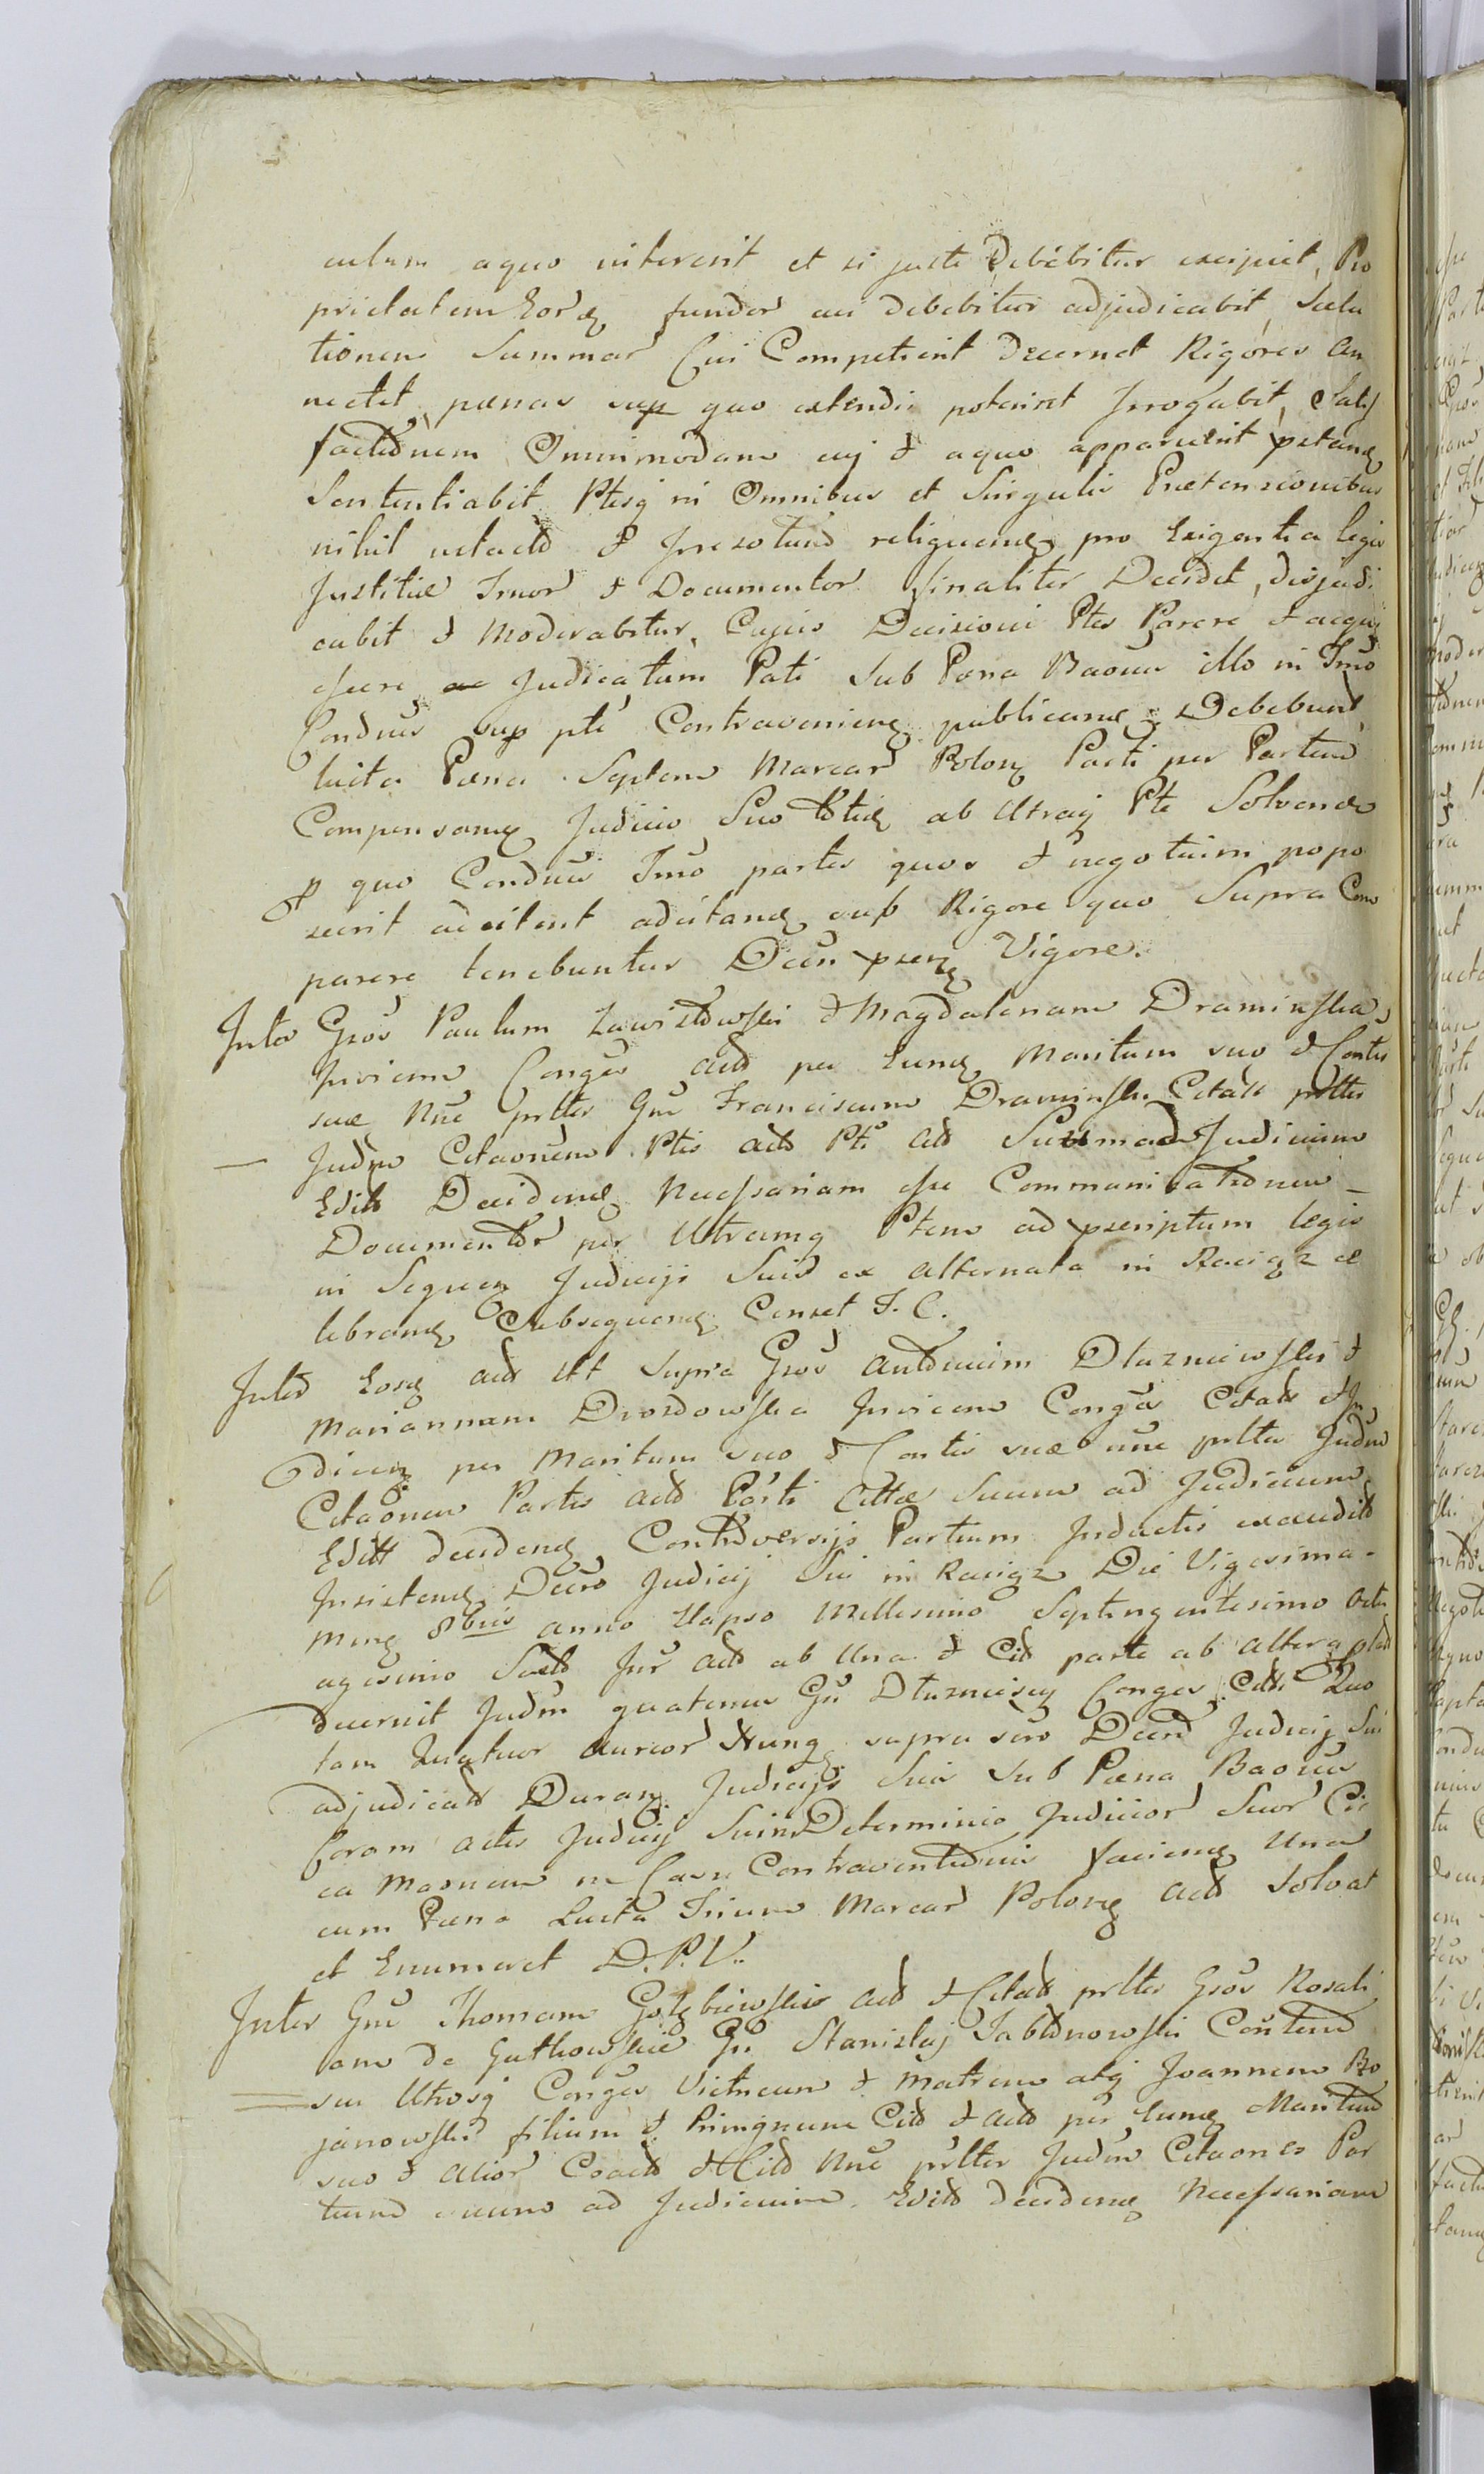 culum aquo intererit et si juste Debebitur excipiet, Pro
prietatem Eorq fundor cui debebitur adjudicabit, Solu
tionem Summar Cui Competierit Decernet Rigores An
nectet, pœnas sup quo extendi poterint Irrogabit, Satis
factionem Omnimodam cuj & aquo apparuerit pstanq
Sententiabit Ptesq in Omnibus et Singulis Prætensionibus
nihil intacto & Irresolutu relinquenq pro Exigentia legis
Justitiæ Jmor & Documentor finaliter Decidet, disjudi
cabit & Moderabitur. Cujus Decisioni Ptes Parere & acqui
escere ac Judicatum Pati Sub Pœna Baonis illo in Jmo
Condnis sup pte Contravenienq publicanq Debebunt,
luita Pœna Septem Marcar Polonq Parti per Partem
Compensanq Judicio Suo ab Utraq Pte Solvenda
P quo Condnis Jmo partes quos & negotium popo
scerit adcitent adcitanq sub Rigore quo Supra Com
parere tenebuntur Decri psenq Vigore.
Inter Gsos Paulum Zawistowski & Magdalenam Draminska
Invicem Conges Acto per Eunq Maritum suo & Contis
suæ Nne prltes Gnu Franciscum Draminski Citatt prltes
Judm Citaonem Ptis acto Pti Acto Suum ad Judicium
Edito Decidenq Necessariam esse Communicationem
Documentor per Utramq Ptem ad pscriptum legis
in Sequen Judicijs Suis ex alternata in Raciąz ce
lebranq Subsequenq Censet J. C.
Inter Eosq acto ut Supra Gsos Antonium Dłuzniewski &
Mariannam Drozdowska Invicem Conges Citatt & Ju
dicieq per Maritum suo & Contis suæ nne prltes Judm
Citaonem Partis acto Parti Cittæ Suum ad Judicium
Editt decidenq Controversijs Partium Inductis exaudito
Insistenq Decro Judicij Sui in Raciąz Die Vigesima
Menq 8bris anno Elapso Millesimo Septingentesimo Octu
agesimo Sueto Inr acto ab Una & Cito parte ab altera plato
decernit Judm quatenus Gn Dłuzniescy Conges Citti Quo
tam Quatuor Aureor Hung supra sero Decro Judicij Sui
adjudicato Duranq Judicijs Suis Sub Pœna Baonis
Coram Actis Judicij Sui in Determinio Judicior Suor Cir
ca Maonem in Casu Contraventionis facienq Una
cum Pœna Luita Trium Marcar Polonq acto Solvat
et Enumeret D. P. V.
Inter Gnu Thomam Gołębiewski Acto & Citato prltes Gsos Rosali
am de Gutkowskie Gn Stanisłaj Jabłonowski Contem
sui Utrosq Conges Vietricum & Matrem atq Joannem Bo
janowski filium & Privignum Cito & acto per Eunq Maritum
suo & Alior Coacto & Cito Nne prltes Judm Citaones Par
tium suum ad Judicium Edito decidenq Necessariam